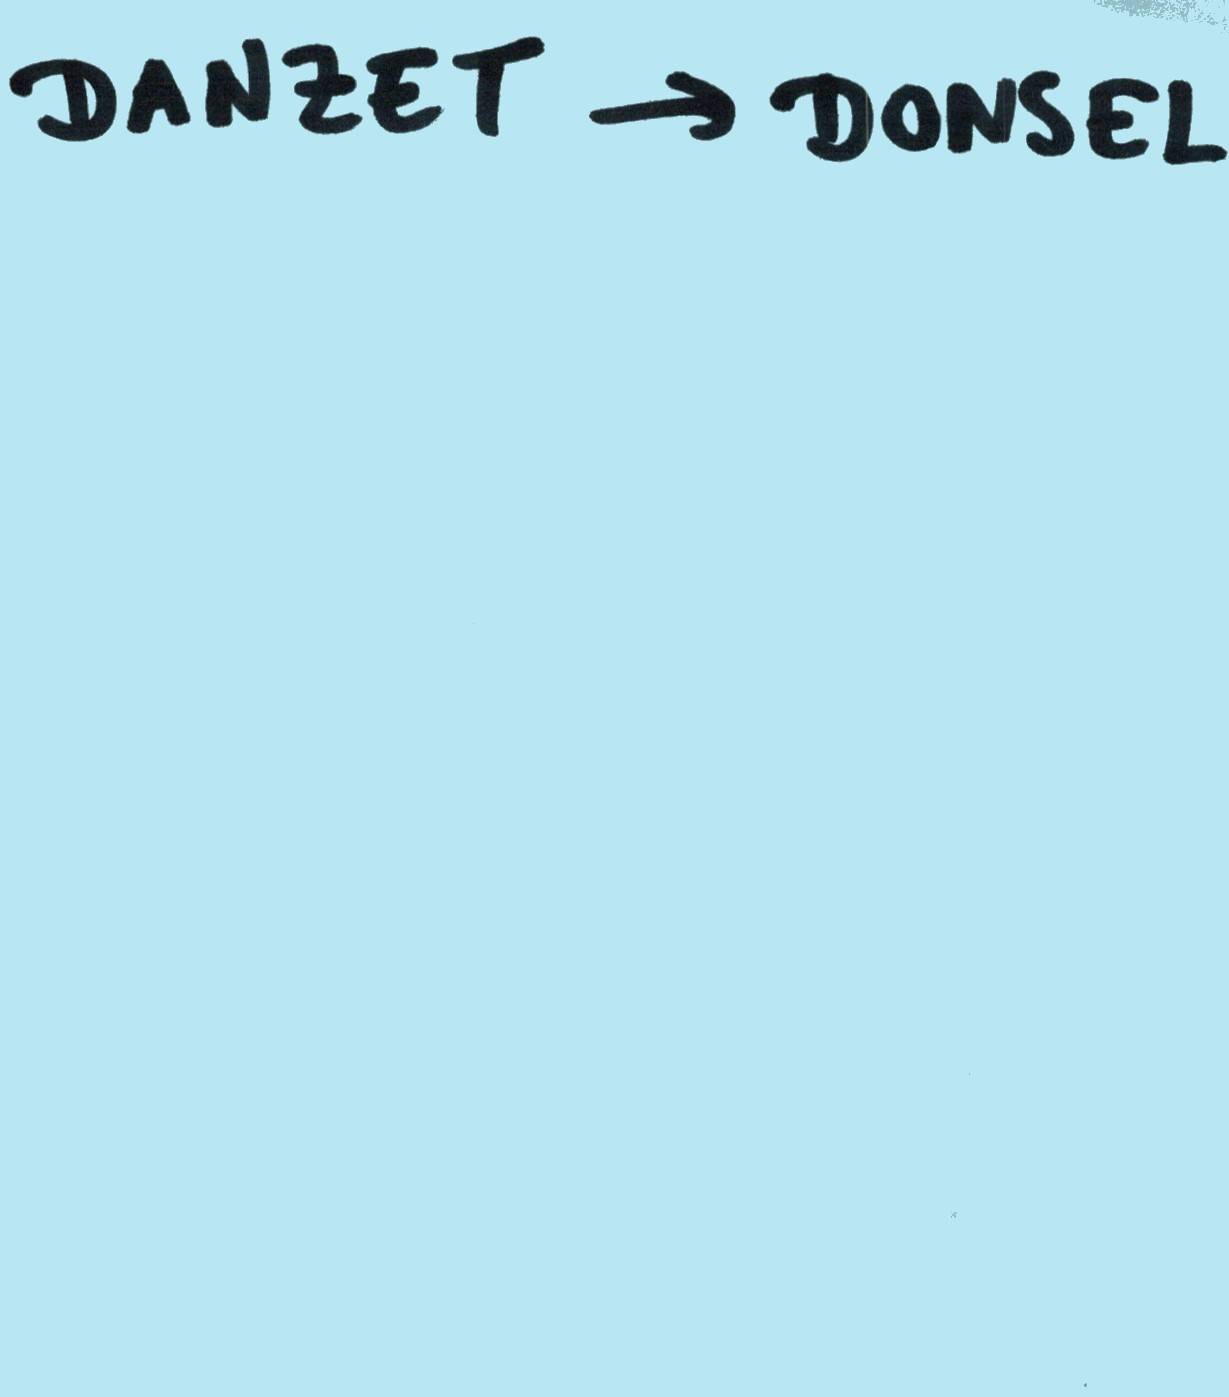 DANZET → DONSEL